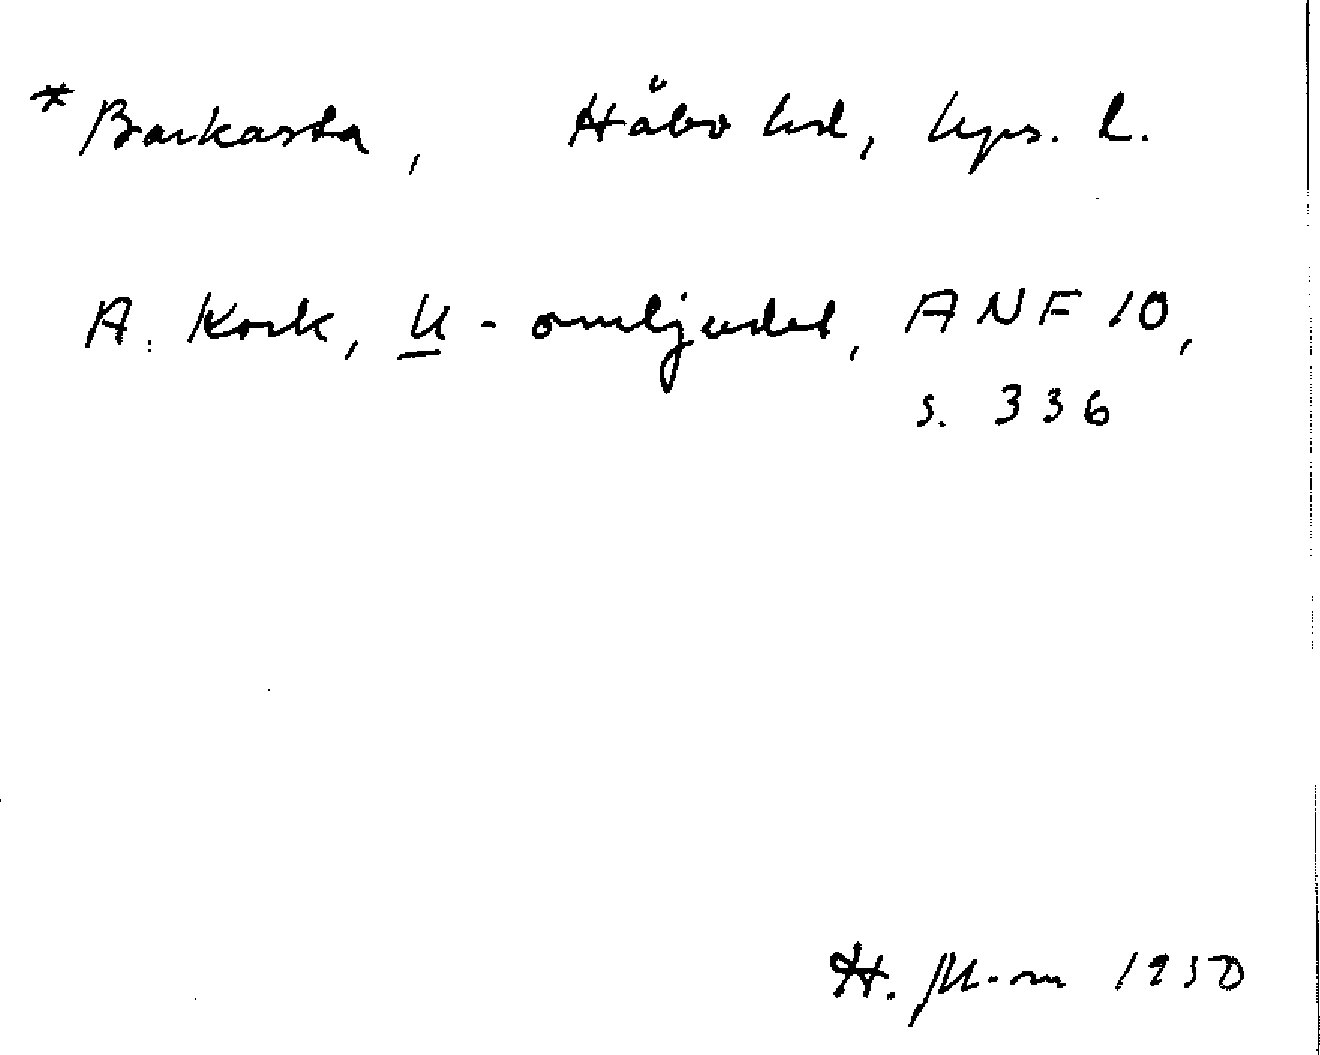 *Barkarba, Håbo hd, Upps. l.
A. Kock, U-omljudet, ANF 10,
s. 336
H. 1950